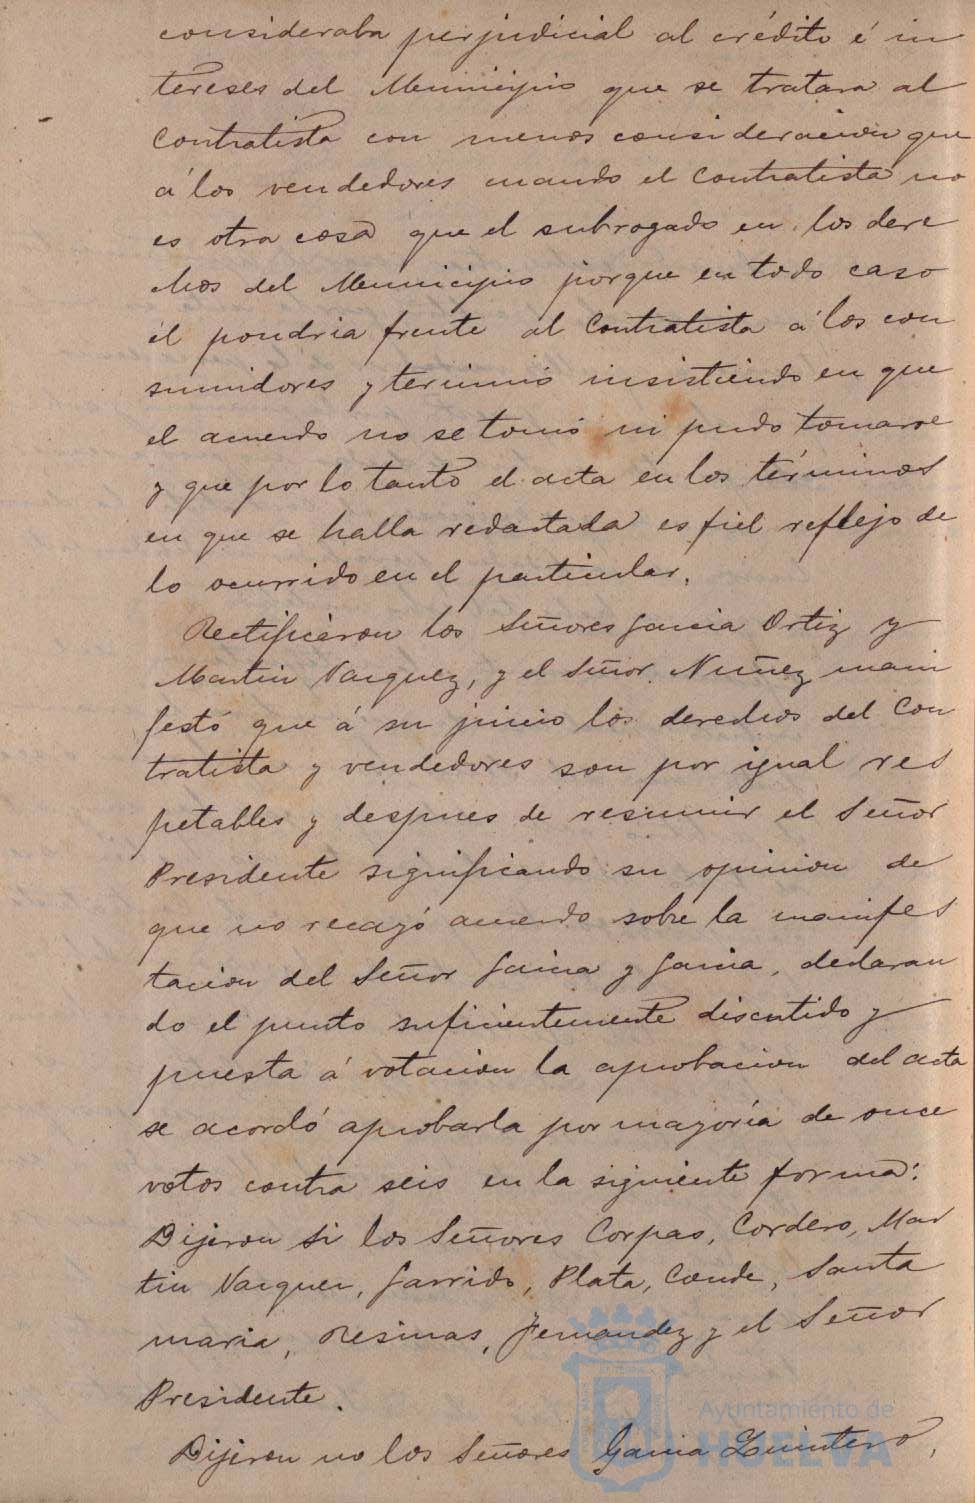 consideraba perjudicial al crédito é in
tereses del Municipio que se tratara al
Contratista con menos consideracion que
á los vendedores cuando el Contratista no
es otra cosa que el subrogado en los dere
chos del Municipio porque en todo caso
él pondria frente al Contratista á los con
sumidores y terminó insistiendo en que
el acuerdo no se tomó ni pudo tomarse
y que por lo tanto el acta en los términos
en que se halla redactada es fiel reflejo de
lo ocurrido en el particular.
Rectificaron los Señores Garcia Ortiz y
Martin Vazquez, y el Señor Nuñez mani
festó que á su juicio los derechos del Con
tratista y vendedores son por igual res
petables y despues de resumir el Señor
Presidente significando su opinion de
que no recayó acuerdo sobre la manifes
tacion del Señor Garcia y Garcia, declaran
do el punto suficientemente discutido y
puesta á votacion la aprobacion del acta
se acordó aprobarla por mayoría de once
votos contra seis en la siguiente forma:
Dijeron si los Señores Corpas, Cordero, Mar
tin Vazquez, Garrido, Plata, Conde, Santa
maria, Resinas, Fernandez y el Señor
Presidente.
Dijeron no los Señores Garcia Quintero,
Ayuntamiento de
HUELVA